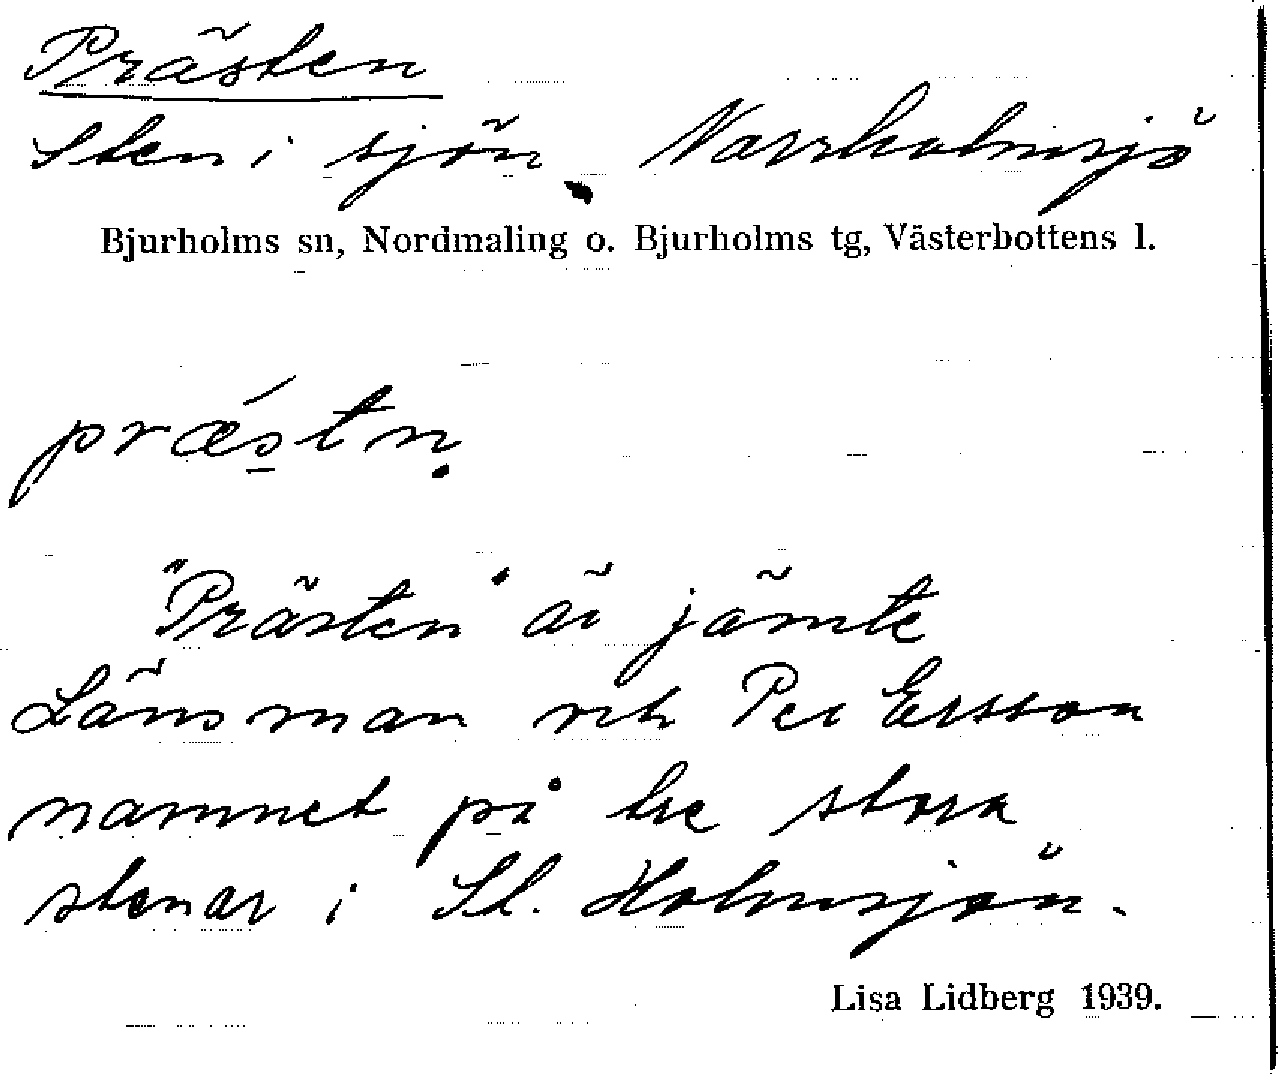 Prästen
Sten i sjön, Norrholmsjö
Bjurholms sn, Nordmaling o. Bjurholms tg, Västerbottens l.
præ´s̲tṇ
"Prästen" är jämte
Länsman och Per Ersson
namnet på tre stora
stenar i St. Holmsjön.
Lisa Lidberg 1939.